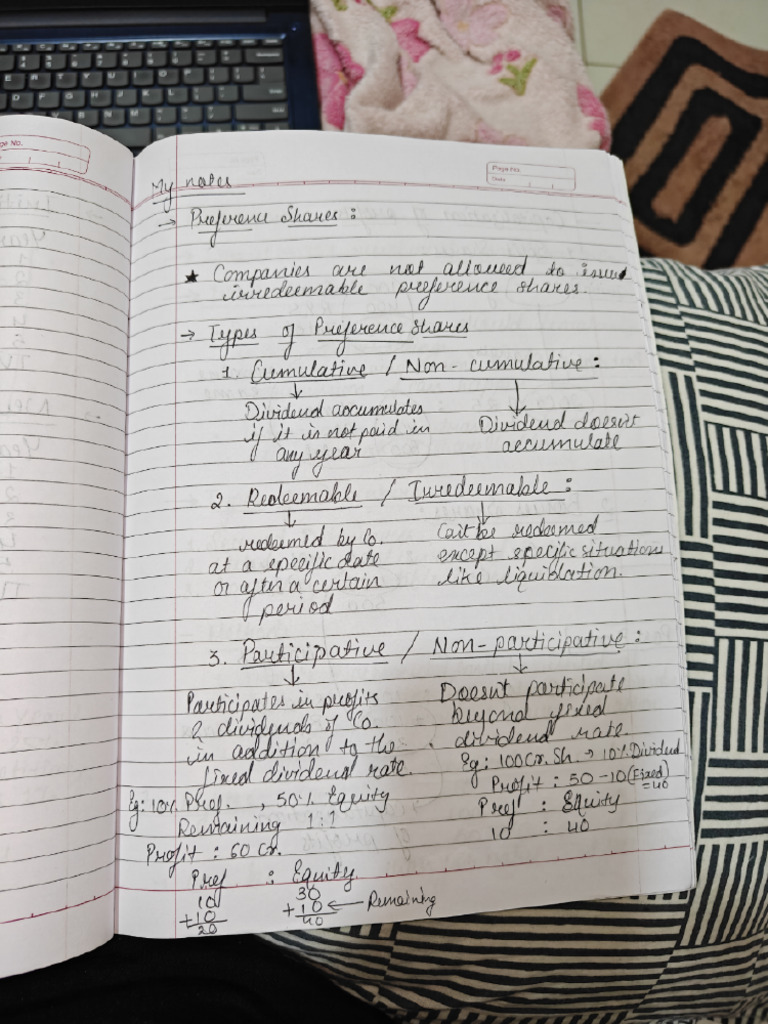 My notes
Page No.
Date
→ Preference Shares :
★ Companies are not allowed to issue
irredeemable preference shares.
→ Types of Preference Shares
1. Cumulative / Non-cumulative :
↓ ↓
Dividend accumulates
if it is not paid in
any year
Dividend doesn't
accumulate
2. Redeemable / Irredeemable :
↓ ↓
redeemed by Co.
at a specific date
or after a certain
period
Can't be redeemed
except specific situations
like liquidation.
3. Participative / Non-participative :
↓ ↓
Participates in profits
& dividends of Co.
in addition to the
fixed dividend rate.
Eg: 10% Pref. , 50% Equity
Remaining 1:1
Profit : 60 Cr.
Pref : Equity
10 30
+10 +10 ← Remaining
20 40
Doesn't participate
beyond fixed
dividend rate.
Eg: 100 Cr. Sh. → 10% Dividend
Profit : 50 - 10 (Fixed)
= 40
Pref : Equity
10 : 40